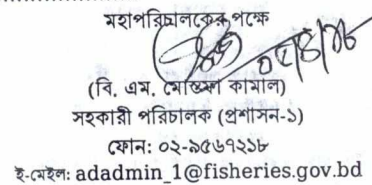 মহাপরিচালকের পক্ষে
০৫/৪/১৮
(বি. এম. মোস্তফা কামাল)
সহকারী পরিচালক (প্রশাসন-১)
ফোন: ০২-৯৫৬৭২১৮
ই-মেইল: adadmin_1@fisheries.gov.bd